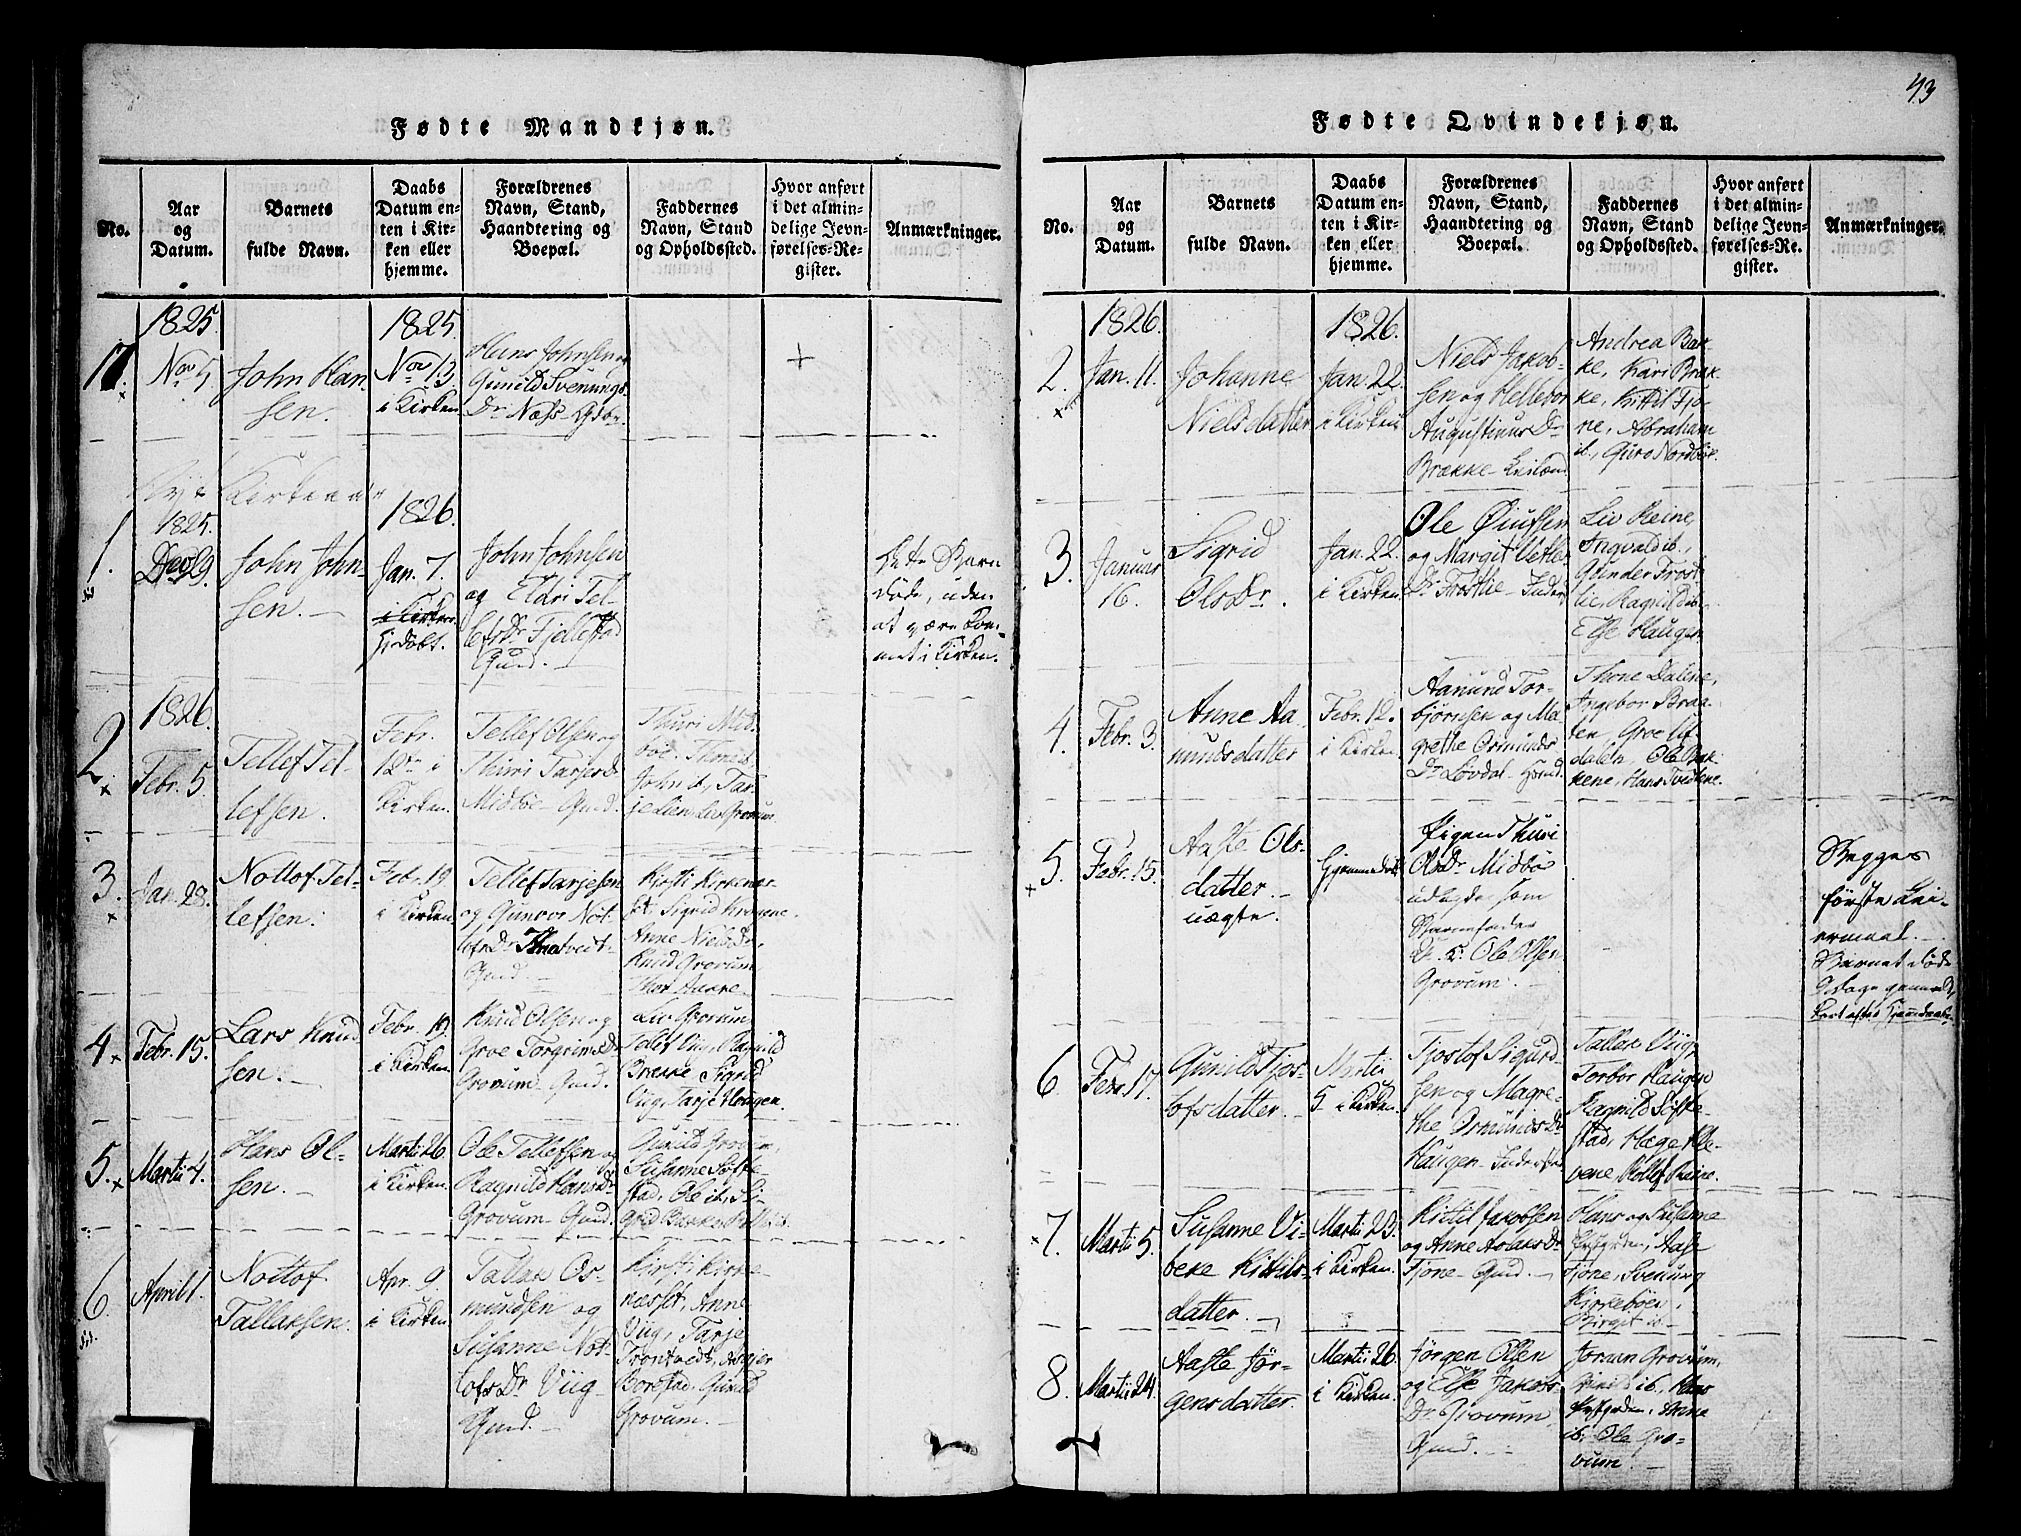 43
Fødte Mandkjøn.
No.
Aar
og
Datum.
Barnets
fulde Navn.
Daabs
Datum en-
ten i Kir-
ken eller
hjemme.
Forældrenes
Navn, Stand,
Haandtering og
Boepæl.
Faddernes
Navn, Stand
og Opholdssted.
Hvor anført
i det almin-
delige Jevn-
førelses-Re-
gister.
Anmærkninger.
17.
1825.
Nov 5.
John Han-
sen.
1825.
Nov 13.
i Kirken
Hans Johnsen og
Gunild Svenungs
Dr. Næss
+
Nyt Kirkeaar
1.
1825.
Dec 29.
John John-
sen.
1826.
Jan. 7.
i Kirken
Hj. døbt.
John Johnsen
og Eldri Tel-
lefs Dr. Fjellestad
Gund.
Dette Barn
døde, uden
at være kom-
met i Kirken.
2.
1826.
Febr. 5.
Tellef Tel-
lefsen.
Febr.
12te i
Kirken.
Tellef Olsen og
Thuri Tarjes Dr
Midbøe Gund.
Thuri Mid-
bøe.
John ib., Tar-
je Lien, Liv Grovum
3.
Jan. 28.
Nottof Tel-
lefsen.
Febr. 19
i Kirken.
Tellef Tarjesen
og Gunvor Not-
tofs Dr.
Gund.
Kjosti Kirkenæs-
set Sigrid
Anne Niels Dr.,
Knud Grovum
4.
Febr. 15.
Lars Knud-
sen.
Febr. 19
i Kirken.
Knud Olsen og
Groe Torgrims Dr
Grovum Gund.
Liv Grovum
Tellef Viig, Ragnild
Brække Sigrid
Viig, Tarje Haugen.
5.
Martii 4.
Hans Ol-
sen.
Martii 26
i Kirken.
Ole Tellefsen og
Ragnild Hans Dr
Grovum Gund.
Gunild Grovum,
Susanne Søfte-
stad, Ole ib., Si-
grid
6.
April 1.
Nottof
Tallaksen.
Apr. 9
i Kirken
Tallak Os-
mundsen og
Susanne Not-
tofs Dr. Viig
Gund.
Kirsti Kirke-
næsset, Anne
Viig, Tarje
Trontvedt, Asbjør
Borestad, Gunild
Grovum.
Fødte Qvindekjøn.
No.
Aar
og
Datum.
Barnets
fulde Navn.
Daabs
Datum en-
ten i Kir-
ken eller
hjemme.
Forældrenes
Navn, Stand,
Haandtering og
Boepæl.
Faddernes
Navn, Stand
og Opholdssted.
Hvor anført
i det almin-
delige Jevn-
førelses-Re-
gister.
Anmærkninger.
2.
1826.
Jan. 11.
Johanne
Nielsdatter
1826.
Jan. 22.
i Kirken
Niels Jakob-
sen og Hellebor
Augustinus Dr
Brække
Andrea Bræk-
ke, Kari Bræk-
ke, Kittil Tjo-
ne, Abraham
ib., Guro Nordbøe.
3.
Januar
16.
Sigrid
Ols Dr.
Jan. 22.
i Kirken
Ole Øiufsen
og Margit Vetle-
Dr. Frostlie
Liv Reine,
Ingvald ib.,
Gunder Frost-
lie, Ragnild ib.,
Else Haugen
4.
Febr. 3.
Anne Aa-
mundsdatter
Febr. 12.
i Kirken.
Aanund Tor-
bjørnsen og Ma-
grethe Osmunds
Dr. Løvdal Gund.
Thone Dalene,
Ingebor Braa-
ten, Groe Uf-
dalen, Ole Bak-
kene, Hans Tveitene.
5.
Febr. 15.
Aaste Ols-
datter.
uægte.
Hjemmedøbt
Pigen Thuri
Ols Dr. Midbøe
udlagde som
Barnefader
Dr. K. Ole Olsen
Grovum.
Begges
første Lei-
ermaal.
Barnet døde
6.
Febr. 17.
Gunild Tjos-
tofsdatter.
Martii
5 i Kirken.
Tjostof Sigurd-
sen og Magre-
the Osmunds Dr
Haugen
Tallak Viig,
Torbor Haugen
Ragnild Søfte-
stad, Hæge Kle-
vene, Rollef Reine.
7.
Martii 5.
Susanne Vi-
beke Kittils-
datter.
Martii 23.
i Kirken.
Kittil Jakobsen
og Anne Aslaks Dr
Tjone Gund.
Hans og Susanne
Præstgrden, Aase
Tjone, Svenung
Kirkebøen,
Birgit ib.
8.
Martii 24.
Aaste Jør-
gensdatter.
Martii 26.
i Kirken.
Jørgen Olsen
og Else Jakobs-
Dr. Grovum
Gund.
Joraan Grovum,
Gunild ib., Hans
Præstgrden, Anne
ib., Ole Gro-
vum.